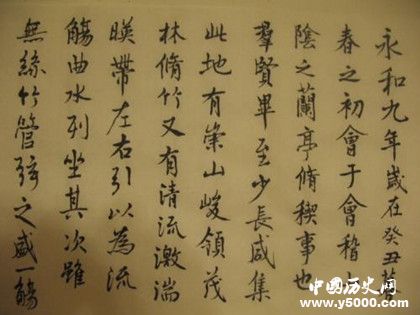 永和九年歲在癸丑暮
春之初會于會稽山
陰之蘭亭脩稧事也
羣賢畢至少長咸集
此地有崇山峻領茂
林脩竹又有清流激湍
暎帶左右引以為流
觴曲水列坐其次雖
無絲竹管弦之盛一觴
中国历史网
www.y5000.com